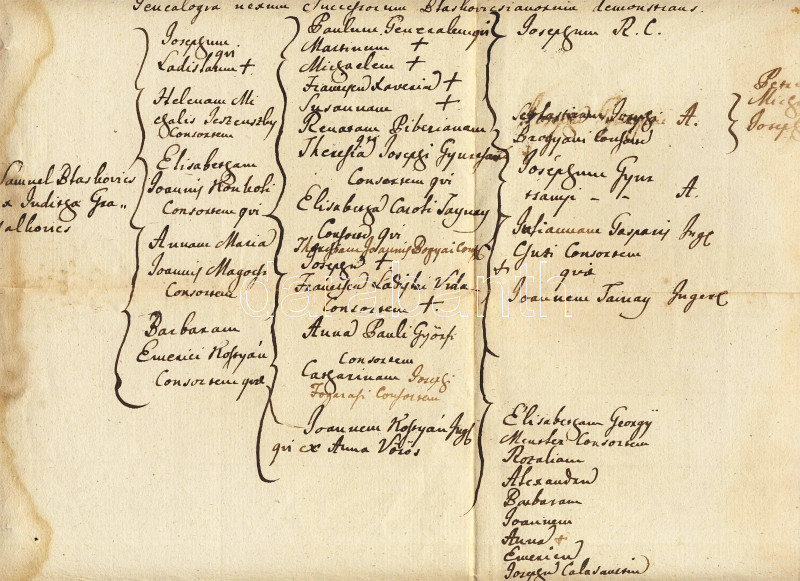 Genealogia nexum Successorum Blaskovicsianorum demonstrans.
Samuel Blaskovics
ex Juditha Gra-
salkovics
Josephum
qui
Ladislaum +
Helenam Mi
chalis Jeszenszky
Consortem
Elisabetham
Joannis Konkoli
Consortem qui
Annam Maria
Joannis Magocsi
Consortem
Barbaram
Emerici Kossyán
Consortem quæ
Paulum Generalem qui
Martinum +
Michaelem +
Francisca Xaveria +
Susannam +
Renatam Piberianam
Theresia Josephi Gyurcsan
Consortem qui
Elisabetha Caroli Tajnay
Consors qui
Theresiam Joannis Bogyai Cons
Joseph +
Francisca Ladislai Vida
Consortem +.
Anna Pauli Györfi
Consortem
Catharinam Josephi
Fogarasi Consortem
Joannem Kossyán Jugl
qui ex Anna Vörös
Josephum R. C.
Sebastianum Josephi A.
Brogyani Consors
Josephum Gyur
tsanyi - - A.
Juliannam Gasparis Jugl
Csuti Consortem
quæ
Joannem Tajnay Jugerl
Elisabetham Georgÿ
Menster Consortem
Rozaliam
Alexandru
Barbaram
Joannem
Anna +
Emericu
Joseph Calasantiu
Petr
Mich
Joseph
darabanth